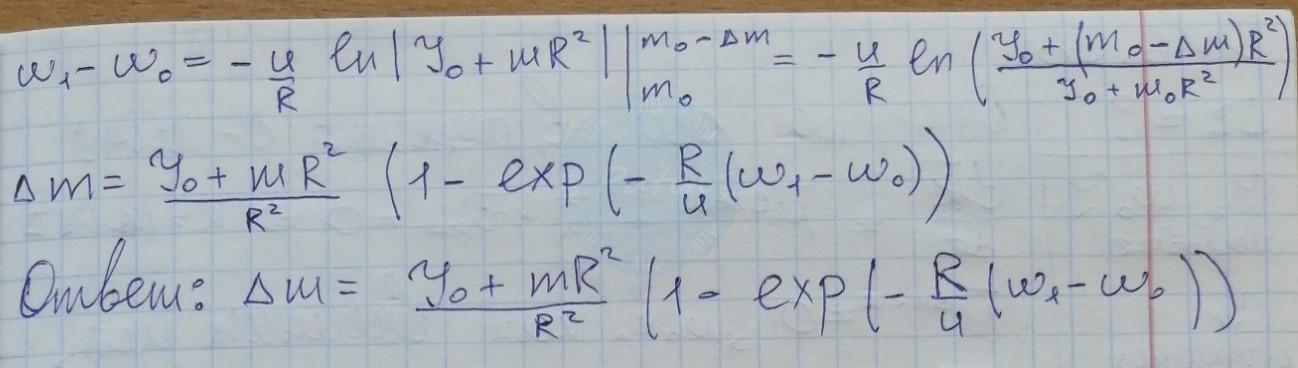 ω₁ - ω₀ = - u/R ln| J₀ + mR² | |_{m₀}^{m₀ - Δm} = - u/R ln( (J₀ + (m₀ - Δm)R²) / (J₀ + m₀R²) )
Δm = (J₀ + mR²)/R² (1 - exp(- R/u (ω₁ - ω₀))
Ответ: Δm = (J₀ + mR²)/R² (1 - exp(- R/u (ω₁ - ω₀)))